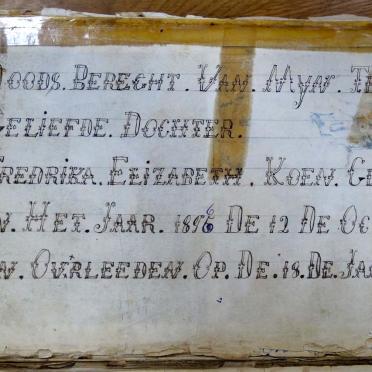 DOODS. BERECHT. VAN. MYN. TE
GELIEFDE. DOCHTER.
FREDRIKA. ELIZABETH. KOEN. GE
N. HET. JAAR. 1896 DE 12 DE OC
EN. OVRLEEDEN. OP. DE. 18. DE. JAN